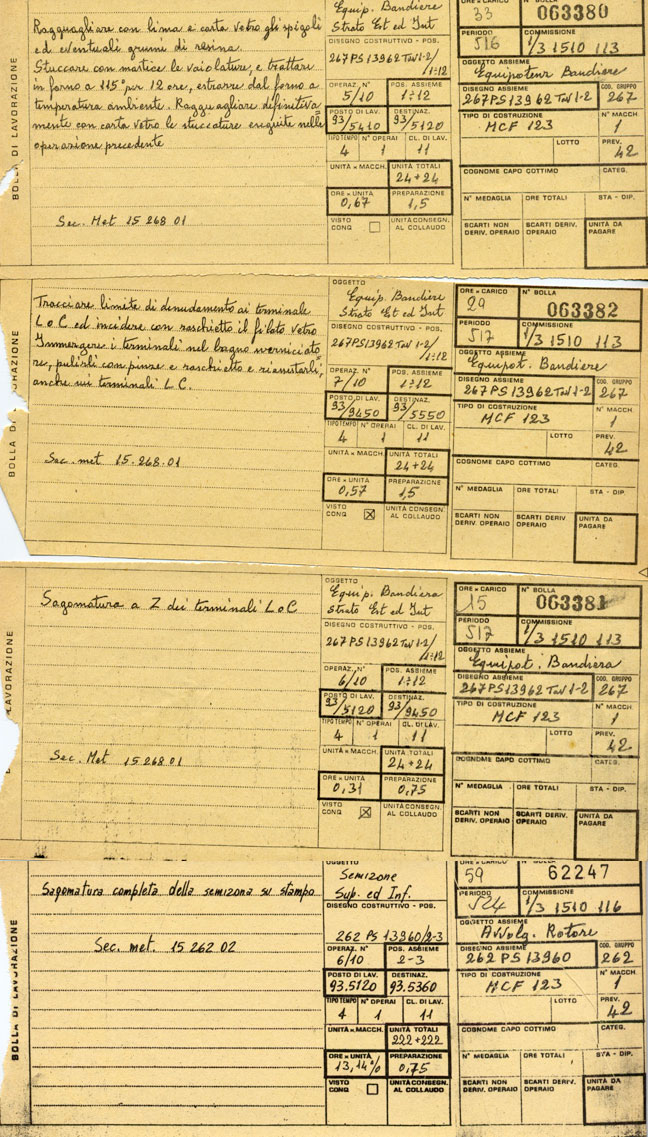 BOLLA DI LAVORAZIONE
Ragguagliare con lima e carta vetro gli spigoli
ed eventuali grumi di resina.
Stuccare con mastice le vaiolature, e trattare
in forno a 115° per 12 ore, estrarre dal forno a
temperatura ambiente. Ragguagliare definitiva
mente con carta vetro le stuccature eseguite nelle
operazione precedente
Sec. Met 15 268 01
Equip. Bandiere
Strato Est ed Int
DISEGNO COSTRUTTIVO - POS.
267 PS 13962 Tav 1-2/
/1÷12
OPERAZ. N° POS. ASSIEME
5/10 1÷12
POSTO DI LAV. DESTINAZ.
93/5410 93/5120
TIPO TEMPO N° OPERAI CL. DI LAV.
4 1 11
UNITÀ x MACCH. UNITÀ TOTALI
24+24
ORE x UNITÀ PREPARAZIONE
0,67 1,5
VISTO CONQ UNITÀ CONSEGN. AL COLLAUDO
ORE x CARICO N° BOLLA
33 063380
PERIODO COMMISSIONE
516 1/3 1510 113
OGGETTO ASSIEME
Equipoten Bandiere
DISEGNO ASSIEME COD. GRUPPO
267PS13962 Tav 1-2 267
TIPO DI COSTRUZIONE N° MACCH
MCF 123 1
LOTTO PREV.
42
COGNOME CAPO COTTIMO CATEG.
N° MEDAGLIA ORE TOTALI STA - DIP.
SCARTI NON DERIV. OPERAIO SCARTI DERIV. OPERAIO UNITÀ DA PAGARE
BOLLA DI LAVORAZIONE
Tracciare limite di denudamento ai terminale
L o C ed incidere con raschietto il filato vetro
Immergere i terminali nel bagno sverniciato
re, pulirli con pinze e raschietto e
anche sui terminali L C.
Sec. met 15.268.01
OGGETTO
Equip. Bandiere
Strato Est ed Int
DISEGNO COSTRUTTIVO - POS.
267 PS13962 Tav 1-2/
/1÷12
OPERAZ. N° POS. ASSIEME
7/10 1÷12
POSTO DI LAV. DESTINAZ.
93/9450 93/5550
TIPO TEMPO N° OPERAI CL. DI LAV.
4 1 11
UNITÀ x MACCH. UNITÀ TOTALI
24+24
ORE x UNITÀ PREPARAZIONE
0,57 1,5
VISTO CONQ UNITÀ CONSEGN. AL COLLAUDO
ORE x CARICO N° BOLLA
29 063382
PERIODO COMMISSIONE
517 1/3 1510 113
OGGETTO ASSIEME
Equipot. Bandiere
DISEGNO ASSIEME COD. GRUPPO
267 PS 13962 Tav 1-2 267
TIPO DI COSTRUZIONE N° MACCH
MCF 123 1
LOTTO PREV.
42
COGNOME CAPO COTTIMO CATEG.
N° MEDAGLIA ORE TOTALI STA - DIP.
SCARTI NON DERIV. OPERAIO SCARTI DERIV OPERAIO UNITÀ DA PAGARE
LAVORAZIONE
Sagomatura a Z dei terminali L o C
Sec. Met 15 268 01
OGGETTO
Equip. Bandiera
Strato Est ed Int
DISEGNO COSTRUTTIVO - POS.
267 PS 13962 Tav 1-2/
/1÷12
OPERAZ. N° POS. ASSIEME
6/10 1÷12
POSTO DI LAV. DESTINAZ.
93/5120 93/9450
TIPO TEMPO N° OPERAI CL. DI LAV.
4 1 11
UNITÀ x MACCH. UNITÀ TOTALI
24+24
ORE x UNITÀ PREPARAZIONE
0,31 0,75
VISTO CONQ UNITÀ CONSEGN. AL COLLAUDO
ORE x CARICO N° BOLLA
15 063381
PERIODO COMMISSIONE
517 1/3 1510 113
OGGETTO ASSIEME
Equipot. Bandiera
DISEGNO ASSIEME COD. GRUPPO
267PS13962 Tav 1-2 267
TIPO DI COSTRUZIONE N° MACCH
MCF 123 1
LOTTO PREV.
42
COGNOME CAPO COTTIMO CATEG.
N° MEDAGLIA ORE TOTALI STA - DIP.
SCARTI NON DERIV. OPERAIO SCARTI DERIV. OPERAIO UNITÀ DA PAGARE
BOLLA DI LAVORAZIONE
Sagomatura completa della semizona su stampo
Sec. met. 15 262 02
OGGETTO
Semizone
Sup. ed Inf.
DISEGNO COSTRUTTIVO - POS.
262 PS 13960/2-3
OPERAZ. N° POS. ASSIEME
6/10 2-3
POSTO DI LAV. DESTINAZ.
93.5120 93.5360
TIPO TEMPO N° OPERAI CL. DI LAV.
4 1 11
UNITÀ x MACCH. UNITÀ TOTALI
222+222
ORE x UNITÀ PREPARAZIONE
13,14% 0,75
VISTO CONQ UNITÀ CONSEGN. AL COLLAUDO
ORE x CARICO N° BOLLA
59 62247
PERIODO COMMISSIONE
524 1/3 1510 116
OGGETTO ASSIEME
Avvolg. Rotore
DISEGNO ASSIEME COD. GRUPPO
262 PS 13960 262
TIPO DI COSTRUZIONE N° MACCH
MCF 123 1
LOTTO PREV.
42
COGNOME CAPO COTTIMO CATEG.
N° MEDAGLIA ORE TOTALI STA - DIP.
SCARTI NON DERIV. OPERAIO SCARTI DERIV. OPERAIO UNITÀ DA PAGARE